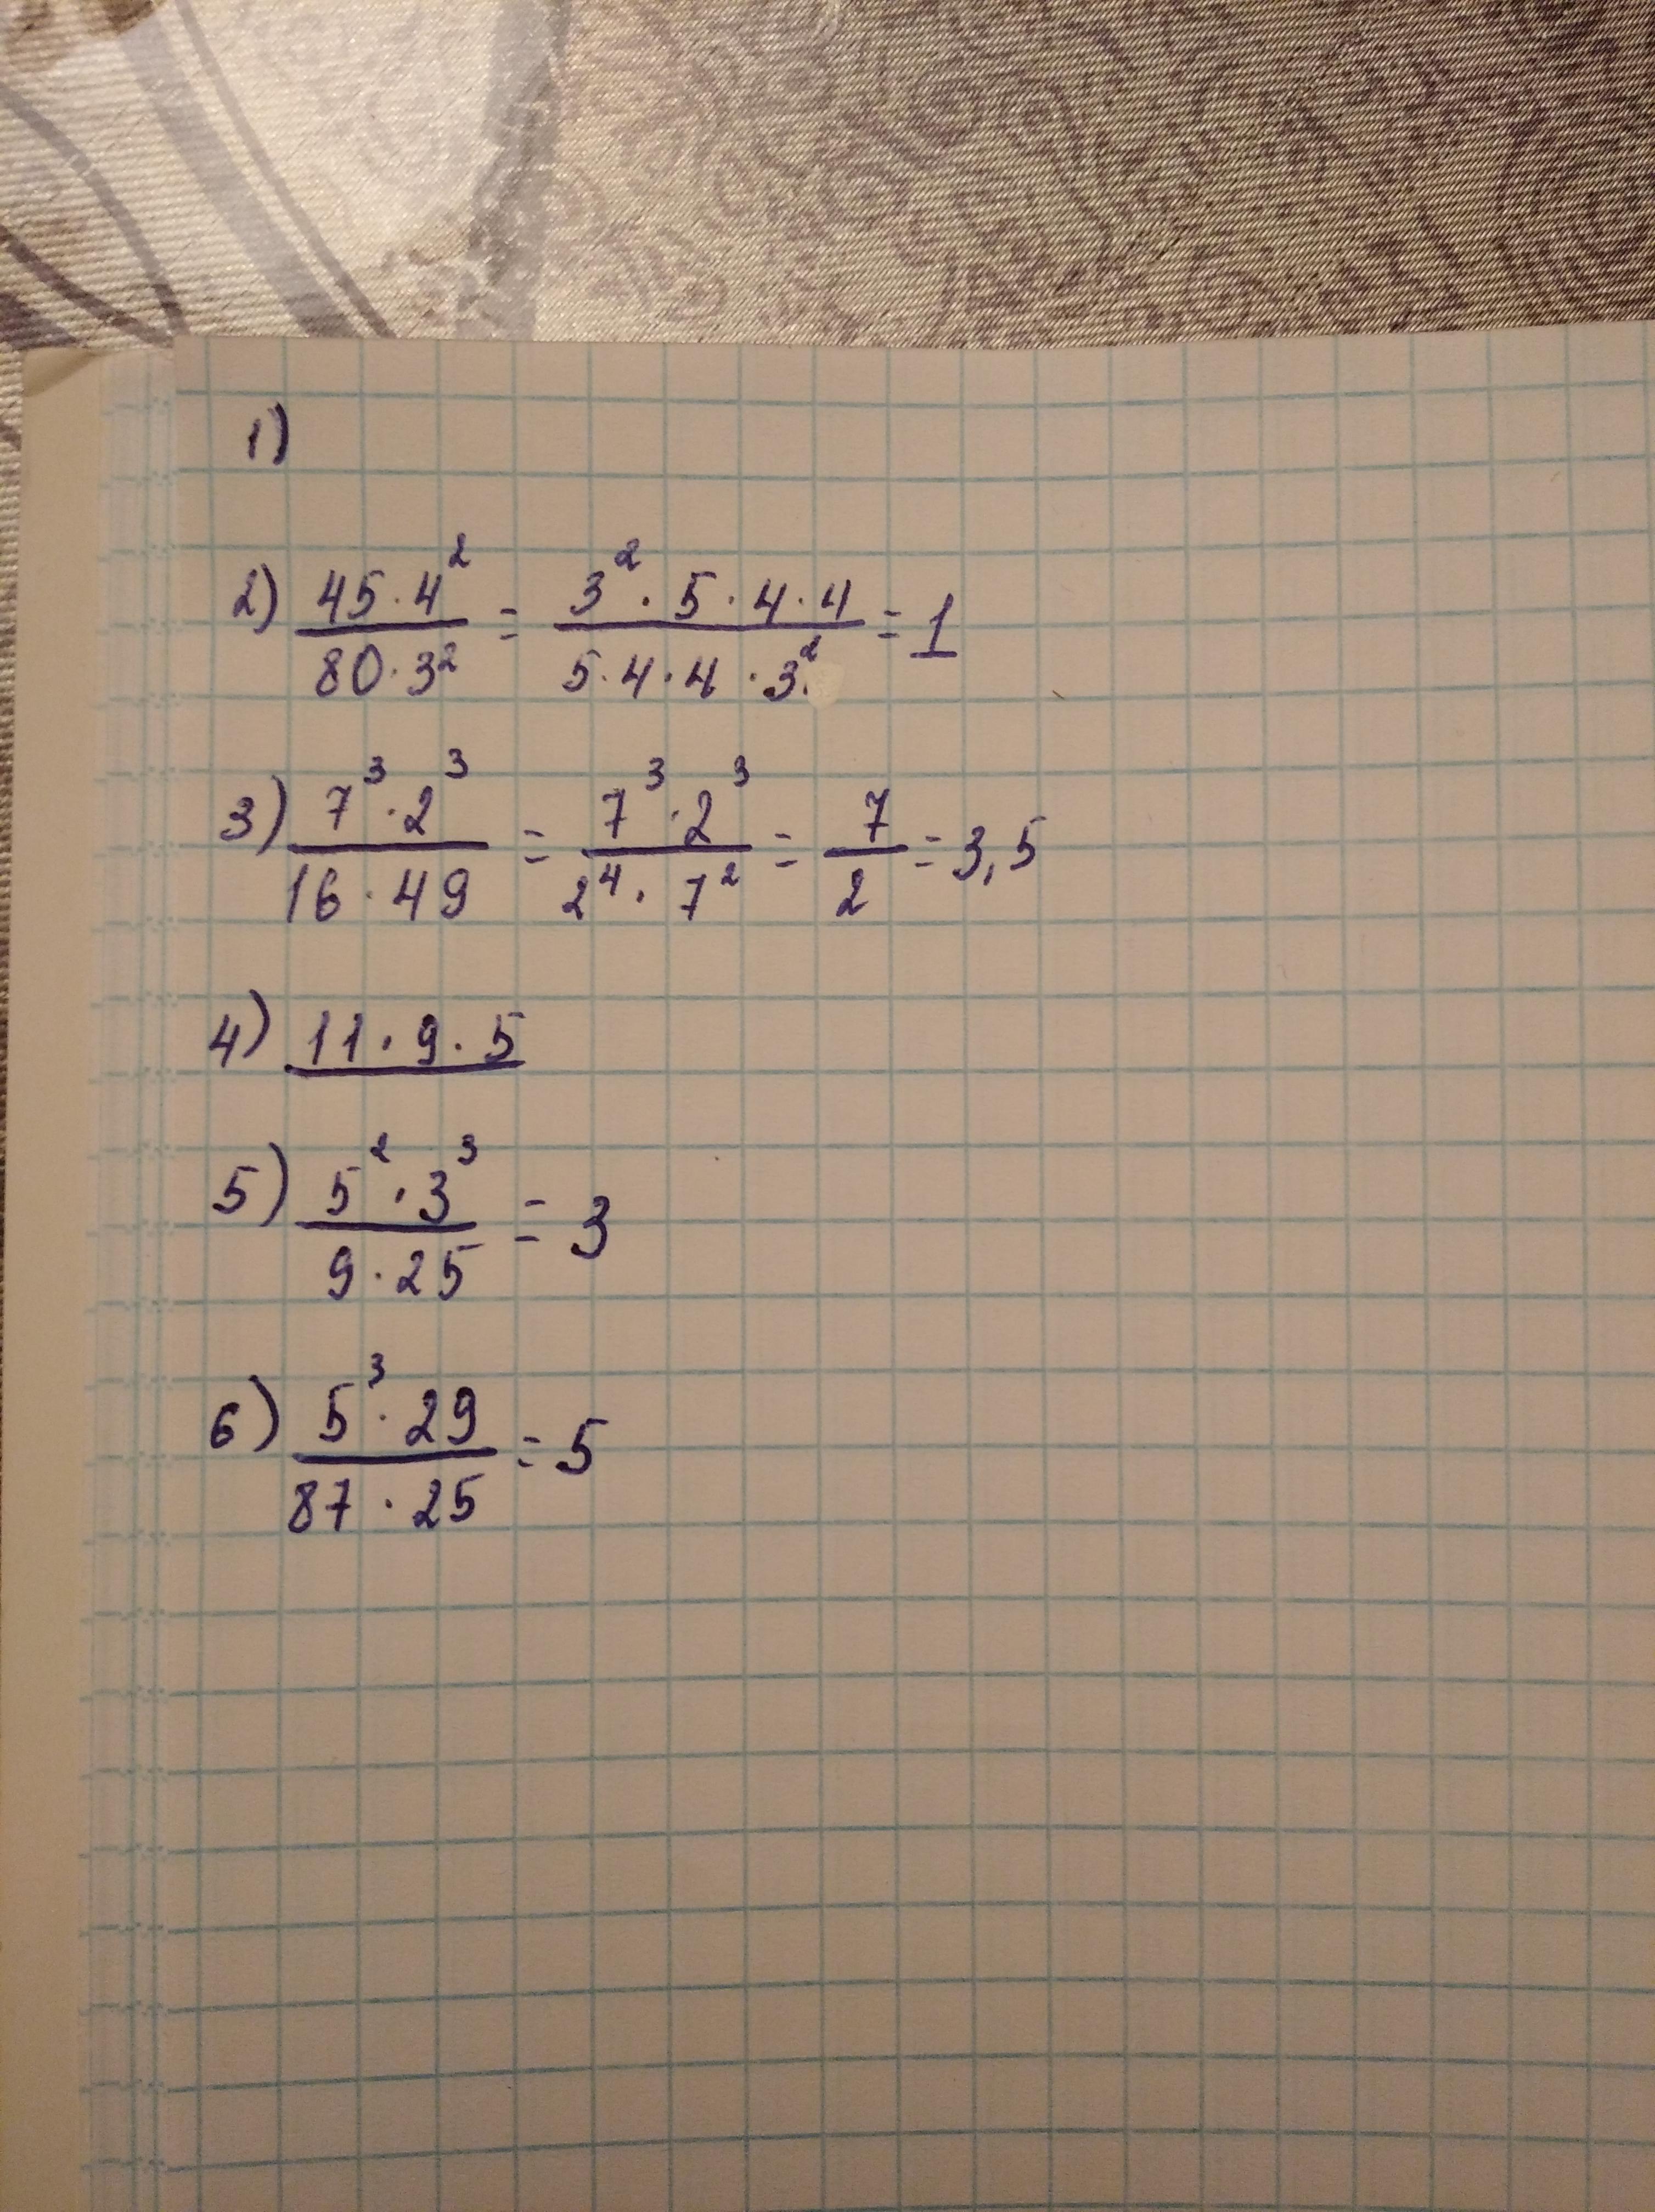 1)
2) \frac{45 \cdot 4^2}{80 \cdot 3^2} = \frac{3^2 \cdot 5 \cdot 4 \cdot 4}{5 \cdot 4 \cdot 4 \cdot 3^2} = 1
3) \frac{7^3 \cdot 2^3}{16 \cdot 49} = \frac{7^3 \cdot 2^3}{2^4 \cdot 7^2} = \frac{7}{2} = 3,5
4) 11 \cdot 9 \cdot 5
5) \frac{5^2 \cdot 3^3}{9 \cdot 25} = 3
6) \frac{5^3 \cdot 29}{87 \cdot 25} = 5